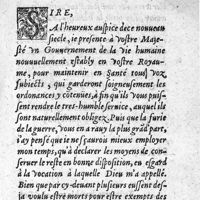 SIRE,
A l'heureux auspice de ce nouueau
siecle, ie presente à vostre Maje-
sté vn Gouuernement de la vie humaine
nouuellement estably en vostre Royau-
me, pour maintenir en Santé tous voz
subiects, qui garderont soigneusement les
ordonances y côtenües, à fin qu'ils vous puis-
sent rendre le tres-humble seruice, auquel ils
sont naturellement obligez. Puis que la furie
de la guerre, vous en a rauy la plus grãd' part,
i'ay pensé que ie ne sçaurois mieux employer
mon temps, qu'à declarer les moyens de con-
seruer le reste en bonne disposition, eu esgard
à la vocation à laquelle Dieu m'a appellé.
Bien que par cy-deuant plusieurs eussent des-
ja voulu estre morts pour estre exempts des